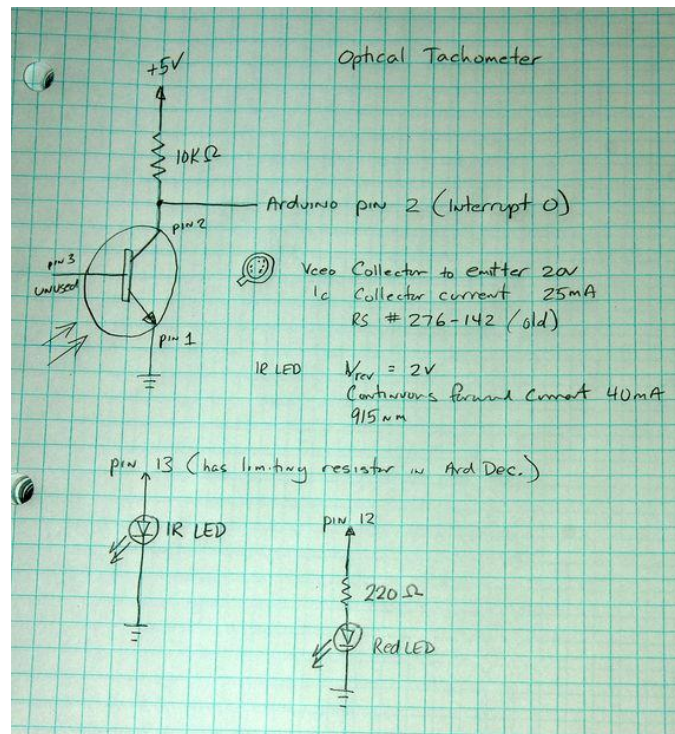 Optical Tachometer
+5V
10KΩ
Arduino pin 2 (Interrupt 0)
pin 2
pin 3
unused
pin 1
Vceo Collector to emitter 20V
Ic Collector current 25mA
RS # 276-142 (old)
IR LED Vrev = 2V
Continuous forward current 40mA
915nm
pin 13 (has limiting resistor in Ard Dec.)
IR LED
pin 12
220Ω
Red LED